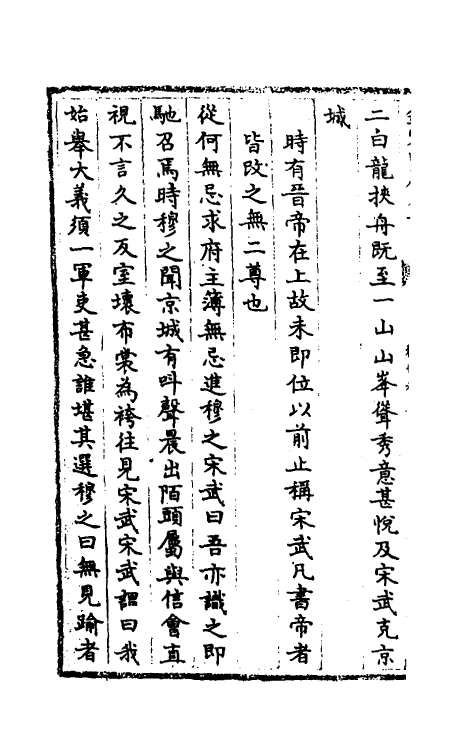 二白龍挾舟既至一山山峯聳秀意甚悅及宋武克京
城
時有晉帝在上故未即位以前止稱宋武凡書帝者
皆改之無二尊也
從何無忌求府主簿無忌進穆之宋武曰吾亦識之即
馳召焉時穆之聞京城有叫聲晨出陌頭屬與信會直
視不言久之反室壞布裳為袴往見宋武宋武謂曰我
始舉大義須一軍吏甚急誰堪其選穆之曰無見踰者